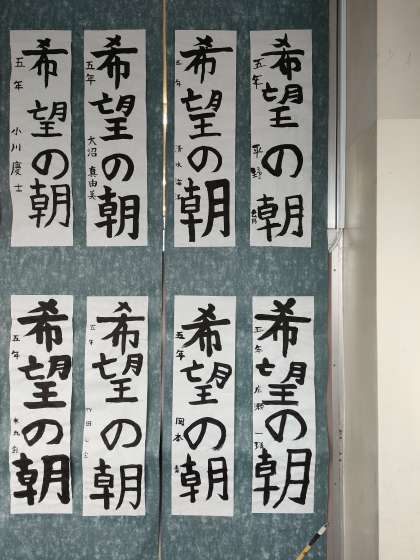 希望の朝
五年 平野
希望の朝
五年 清水
希望の朝
五年 大沼真由美
希望の朝
五年 小川慶士
希望の朝
五年 広瀬
希望の朝
五年 岡本
希望の朝
五年
希望の朝
五年